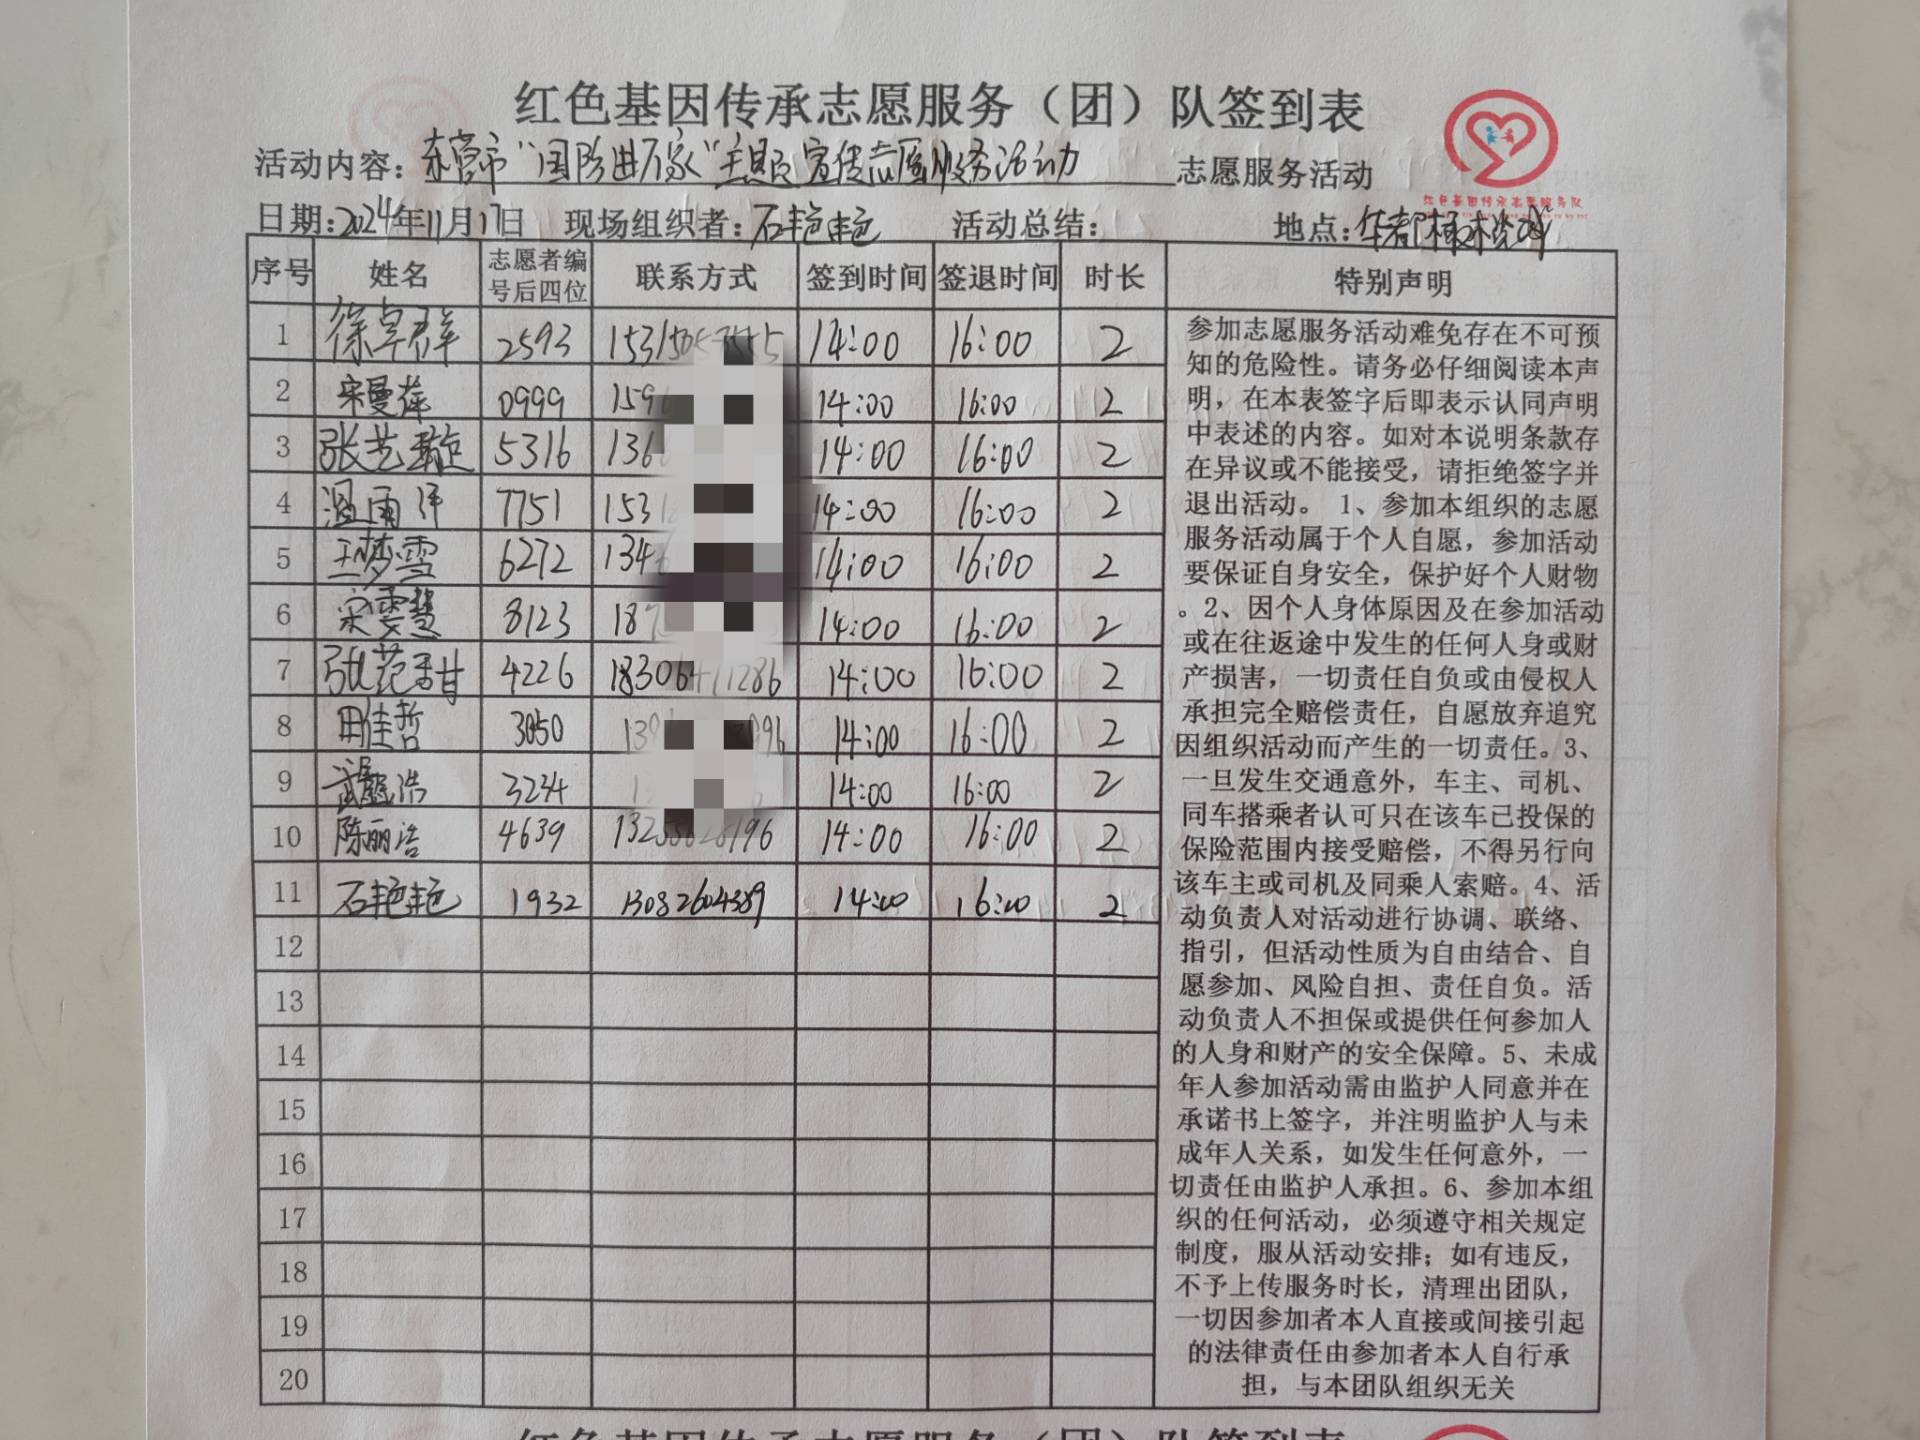 红色基因传承志愿服务（团）队签到表
活动内容：东营市“国防进万家”主题宣传志愿服务活动 志愿服务活动
红色基因传承志愿服务队
日期：2024年11月17日 现场组织者：石艳艳 活动总结： 地点：华都橄榄城
序号 姓名 志愿者编号后四位 联系方式 签到时间 签退时间 时长 特别声明
1 徐卓群 2593 14:00 16:00 2
2 宋曼萍 0999 159 14:00 16:00 2
3 张艺璇 5316 136 14:00 16:00 2
4 温雨 7751 153 14:00 16:00 2
5 王梦雪 6272 134 14:00 16:00 2
6 宋雯慧 8123 18 14:00 16:00 2
7 张范甜 4226 14:00 16:00 2
8 田佳哲 3050 14:00 16:00 2
9 浩 3234 14:00 16:00 2
10 陈丽洁 4639 14:00 16:00 2
11 石艳艳 1932 13082604389 14:00 16:00 2
12
13
14
15
16
17
18
19
20
参加志愿服务活动难免存在不可预
知的危险性。请务必仔细阅读本声
明，在本表签字后即表示认同声明
中表述的内容。如对本说明条款存
在异议或不能接受，请拒绝签字并
退出活动。 1、参加本组织的志愿
服务活动属于个人自愿，参加活动
要保证自身安全，保护好个人财物
。2、因个人身体原因及在参加活动
或在往返途中发生的任何人身或财
产损害，一切责任自负或由侵权人
承担完全赔偿责任，自愿放弃追究
因组织活动而产生的一切责任。3、
一旦发生交通意外，车主、司机、
同车搭乘者认可只在该车已投保的
保险范围内接受赔偿，不得另行向
该车主或司机及同乘人索赔。4、活
动负责人对活动进行协调、联络、
指引，但活动性质为自由结合、自
愿参加、风险自担、责任自负。活
动负责人不担保或提供任何参加人
的人身和财产的安全保障。5、未成
年人参加活动需由监护人同意并在
承诺书上签字，并注明监护人与未
成年人关系，如发生任何意外，一
切责任由监护人承担。6、参加本组
织的任何活动，必须遵守相关规定
制度，服从活动安排；如有违反，
不予上传服务时长，清理出团队，
一切因参加者本人直接或间接引起
的法律责任由参加者本人自行承
担，与本团队组织无关
红色基因传承志愿服务（团）队签到表